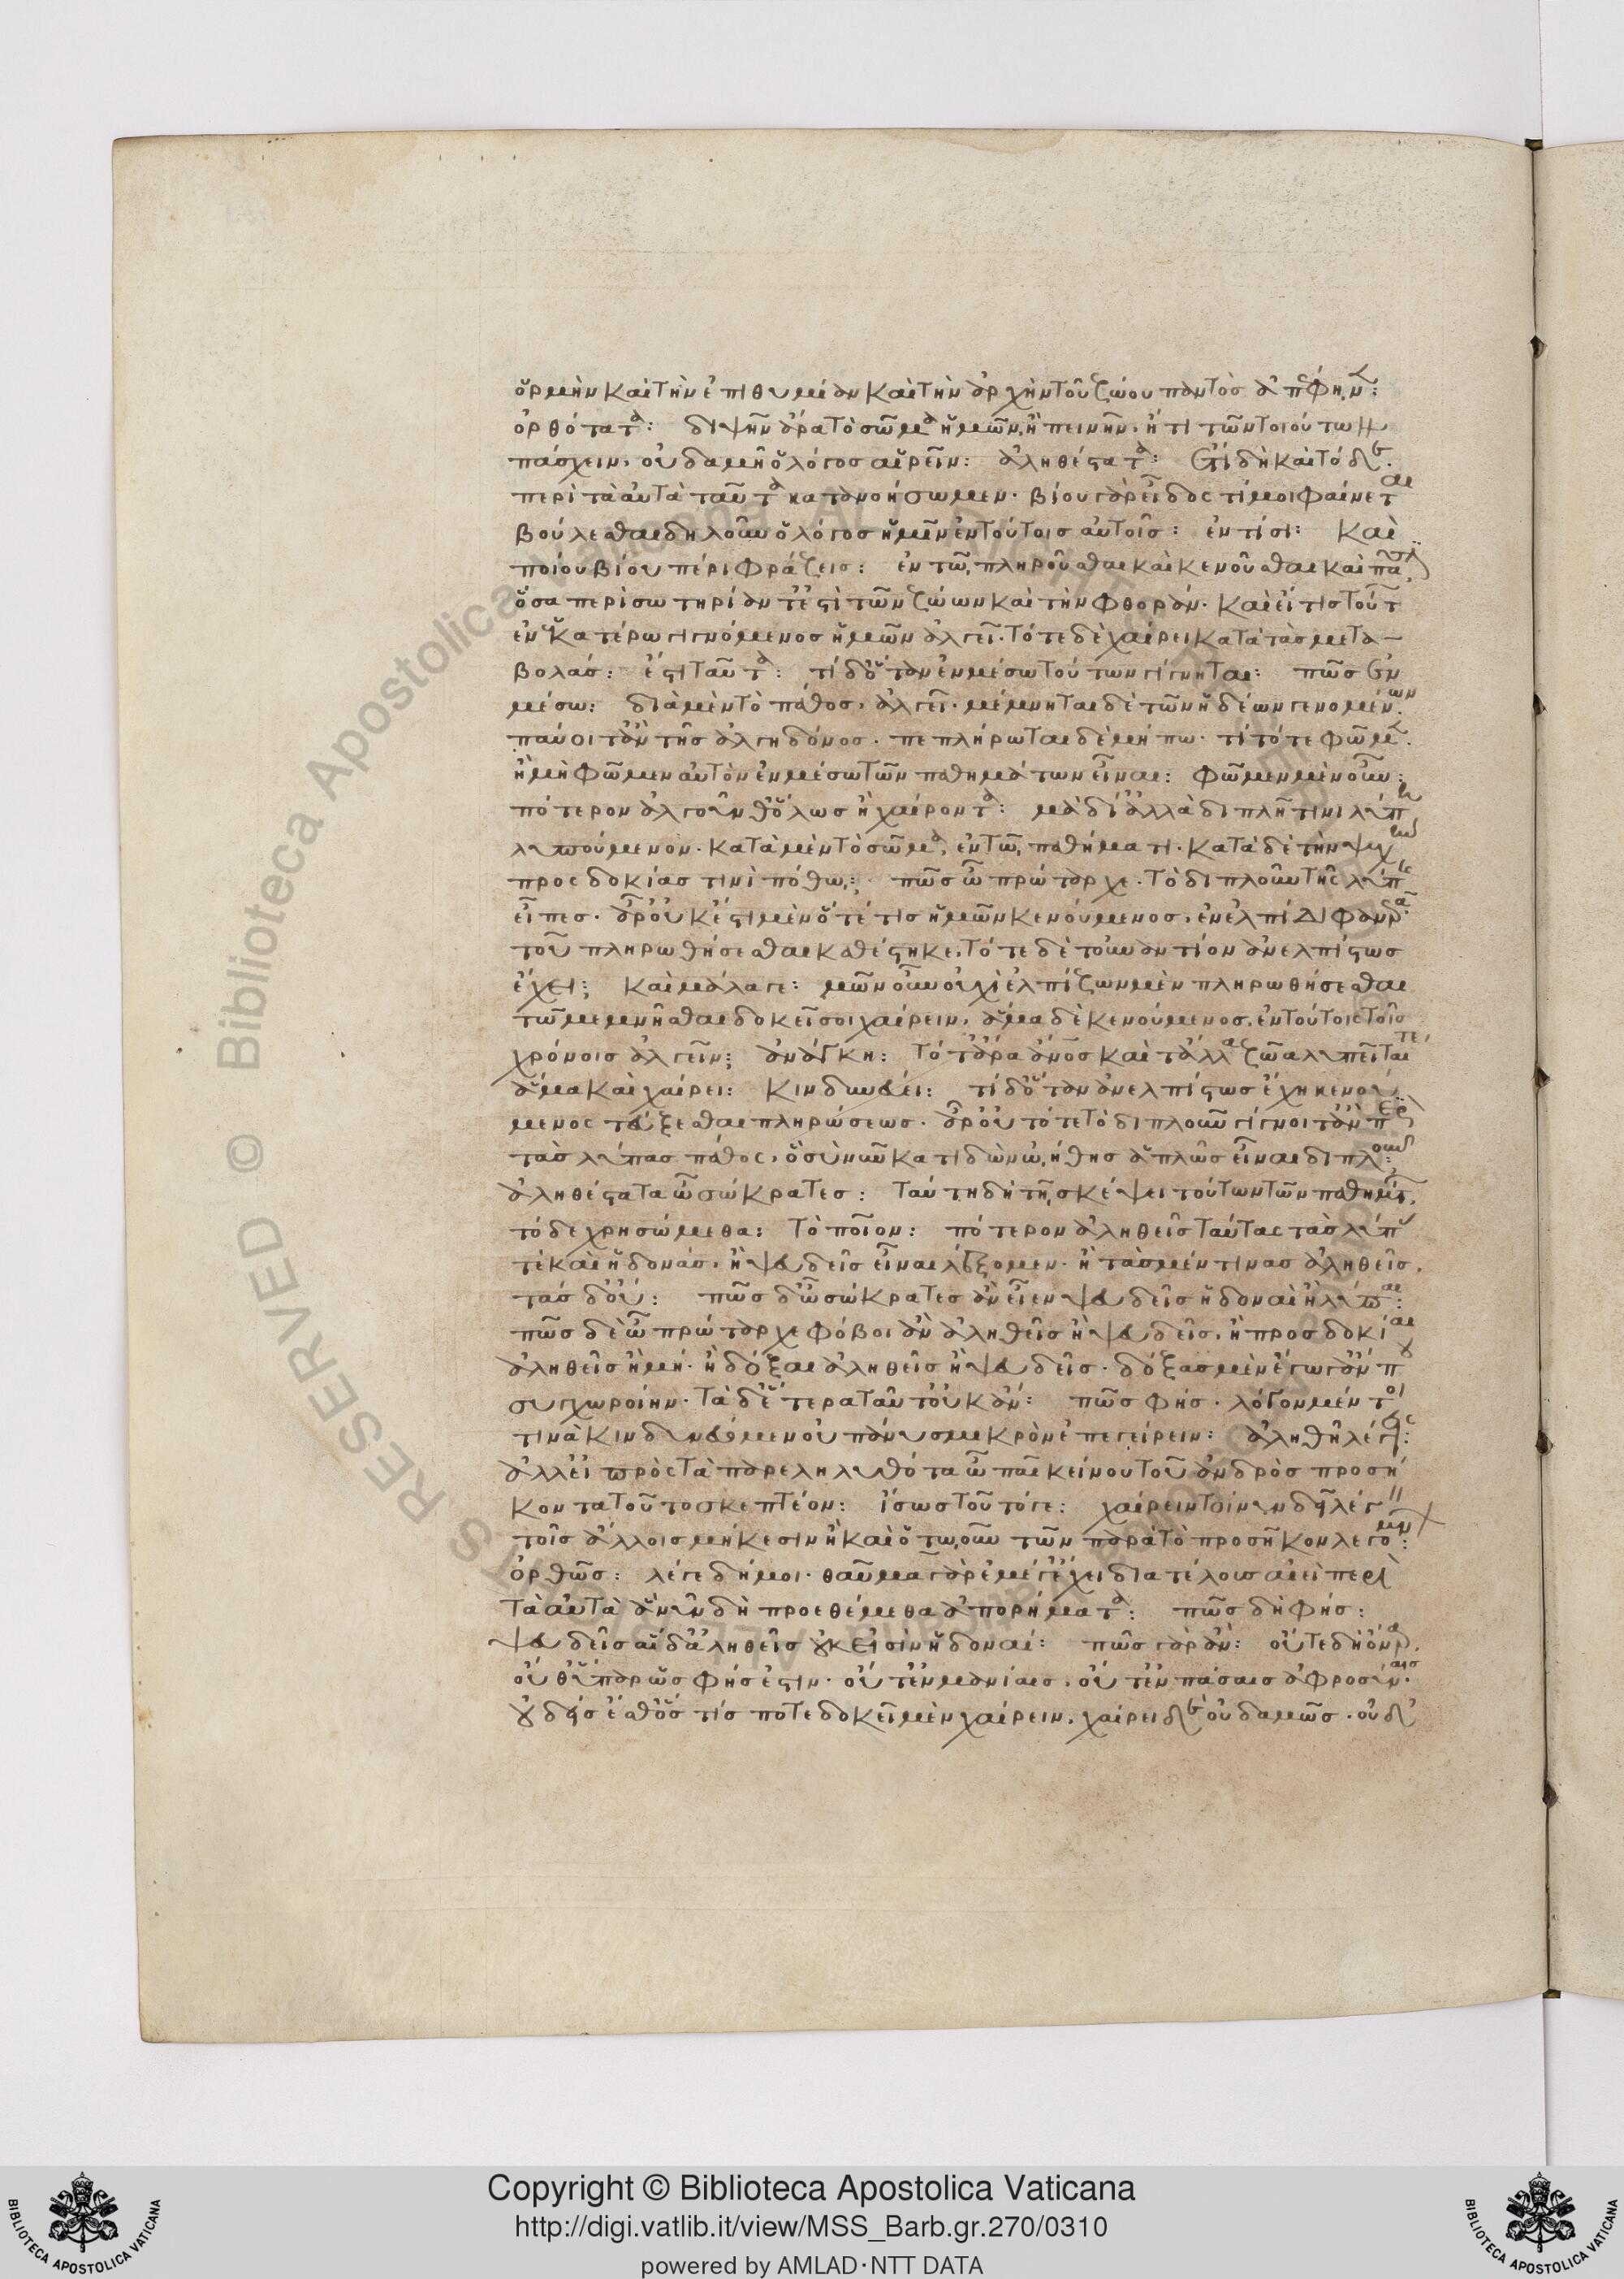 ὁρμὴν καὶ τὴν ἐπιθυμίαν καὶ τὴν ἀρχὴν τοῦ ζώου παντὸς ἀπέφην
ὀρθότατα: διψῆν ἄρα τὸ σῶμα ἡμῶν, ἢ πεινῆν, ἤ τι τῶν τοιούτων
πάσχειν, οὐδαμῆ ὁ λόγος αἱρεῖν: ἀληθέστατα: ἔτι δὴ καὶ τόδε
περὶ τὰ αὐτὰ ταῦτα κατανοήσωμεν. βίου γὰρ εἶδος τί μοι φαίνεται
βούλεσθαι δηλοῦν ὁ λόγος ἡμῖν ἐν τούτοις αὐτοῖς: ἐν τίσι: καὶ
ποίου βίου πέρι φράζεις: ἐν τῶ, πληροῦσθαι καὶ κενοῦσθαι καὶ πᾶσιν
ὅσα περὶ σωτηρίαν τέ ἐστι τῶν ζώων καὶ τὴν φθοράν. καὶ εἴ τις τούτων
ἐν ἑκατέρω γιγνόμενος ἡμῶν ἀλγεῖ. τότε δὲ χαίρει κατὰ τὰς μετα-
βολάς: ἔστι ταῦτα: τί δ' ὅταν ἐν μέσω τούτων γίγνηται: πῶς ἐν
μέσω: διὰ μὲν τὸ πάθος, ἀλγεῖ. μέμνηται δὲ τῶν ἡδέων γενομένων
παύοι τ' ἂν τῆς ἀλγηδόνος. πεπλήρωται δὲ μήπω. τί τότε φῶμεν.
ἢ μὴ φῶμεν αὐτὸν ἐν μέσω τῶν παθημάτων εἶναι: φῶμεν μὲν οὖν:
πότερον ἀλγοῦνθ' ὅλως ἢ χαίροντα: μὰ δί' ἀλλὰ διπλῆ τινὶ λύπη
λυπούμενον. κατὰ μὲν τὸ σῶμα, ἐν τῶ, παθήματι. κατὰ δὲ τὴν ψυχὴν
προσδοκίας τινὶ πόθω,: πῶς ὦ πρώταρχε. τὸ διπλοῦν τῆς λύπης
εἶπες. ἆρ' οὐκ ἔστι μὲν ὅτέ τις ἡμῶν κενούμενος, ἐν ἐλπίδι φανερᾶ
τοῦ πληρωθήσεσθαι καθέστηκε, τότε δὲ τοὐναντίον ἀνελπίστως
ἔχει; καὶ μάλα γε: μῶν οὖν οὐχὶ ἐλπίζων μὲν πληρωθήσεσθαι
τῶ μεμνῆσθαι δοκεῖ σοι χαίρειν, ἅμα δὲ κενούμενος, ἐν τούτοις τοῖς
χρόνοις ἀλγεῖν; ἀνάγκη: τότ' ἄρα ἄνος καὶ τἄλλα ζῶα λυπεῖταί τε
ἅμα καὶ χαίρει: κινδυνεύει: τί δ' ὅταν ἀνελπίστως ἔχη κενού
μενος τεύξεσθαι πληρώσεως. ἆρ' οὐ τότε τὸ διπλοῦν γίγνοιτ' ἂν περὶ
τὰς λύπας πάθος, ὃ σὺ νῦν κατιδὼν ὠήθης ἁπλῶς εἶναι διπλοῦν:
ἀληθέστατα ὦ σώκρατες: ταύτη δὴ τῆ, σκέψει τούτων τῶν παθημάτων,
τόδε χρησώμεθα: τὸ ποῖον: πότερον ἀληθεῖς ταύτας τὰς λύπας
τὲ καὶ ἡδονάς, ἢ ψευδεῖς εἶναι λέξομεν. ἢ τὰς μέν τινας ἀληθεῖς,
τὰς δ' οὔ: πῶς δ' ὦ σώκρατες ἂν εἶεν ψευδεῖς ἡδοναὶ ἢ λῦπαι:
πῶς δὲ ὦ πρώταρχε φόβοι ἂν ἀληθεῖς ἢ ψευδεῖς, ἢ προσδοκίαι
ἀληθεῖς ἢ μή. ἢ δόξαι ἀληθεῖς ἢ ψευδεῖς. δόξας μὲν ἔγωγ' ἄν που
συγχωροίην. τὰ δ' ἕτερα ταῦτ' οὐκ ἄν: πῶς φής. λόγον μέν τοι
τινὰ κινδυνεύομεν οὐ πάνυ σμικρὸν ἐπεγείρειν: ἀληθῆ λέγεις:
ἀλλ' εἰ πρὸς τὰ παρεληλυθότα ὦ παῖ κείνου τοῦ ἀνδρὸς προσή
κοντα τοῦτο σκεπτέον: ἴσως τοῦτό γε: χαίρειν τοίνυν δεῖ λέγειν
τοῖς ἄλλοις μήκεσιν ἢ καὶ ὁτωοῦν τῶν παρὰ τὸ προσῆκον λεγομένων:
ὀρθῶς: λέγε δή μοι. θαῦμα γὰρ ἐμέ γ' ἔχει διὰ τέλους ἀεὶ περὶ
τὰ αὐτὰ ἃ νῦν δὴ προεθέμεθα ἀπορήματα: πῶς δὴ φής:
ψευδεῖς αἱ δ' ἀληθεῖς οὐκ εἰσὶν ἡδοναί: πῶς γὰρ ἄν: οὔτε δὴ ὄναρ,
οὔθ' ὕπαρ ὡς φὴς ἐστιν. οὔτ' ἐν μανίαις, οὔτ' ἐν πάσαις ἀφροσύναις.
οὐδεὶς ἔσθ' ὅς τίς ποτε δοκεῖ μὲν χαίρειν, χαίρει δὲ οὐδαμῶς. οὐδ'
Copyright © Biblioteca Apostolica Vaticana
http://digi.vatlib.it/view/MSS_Barb.gr.270/0310
powered by AMLAD·NTT DATA